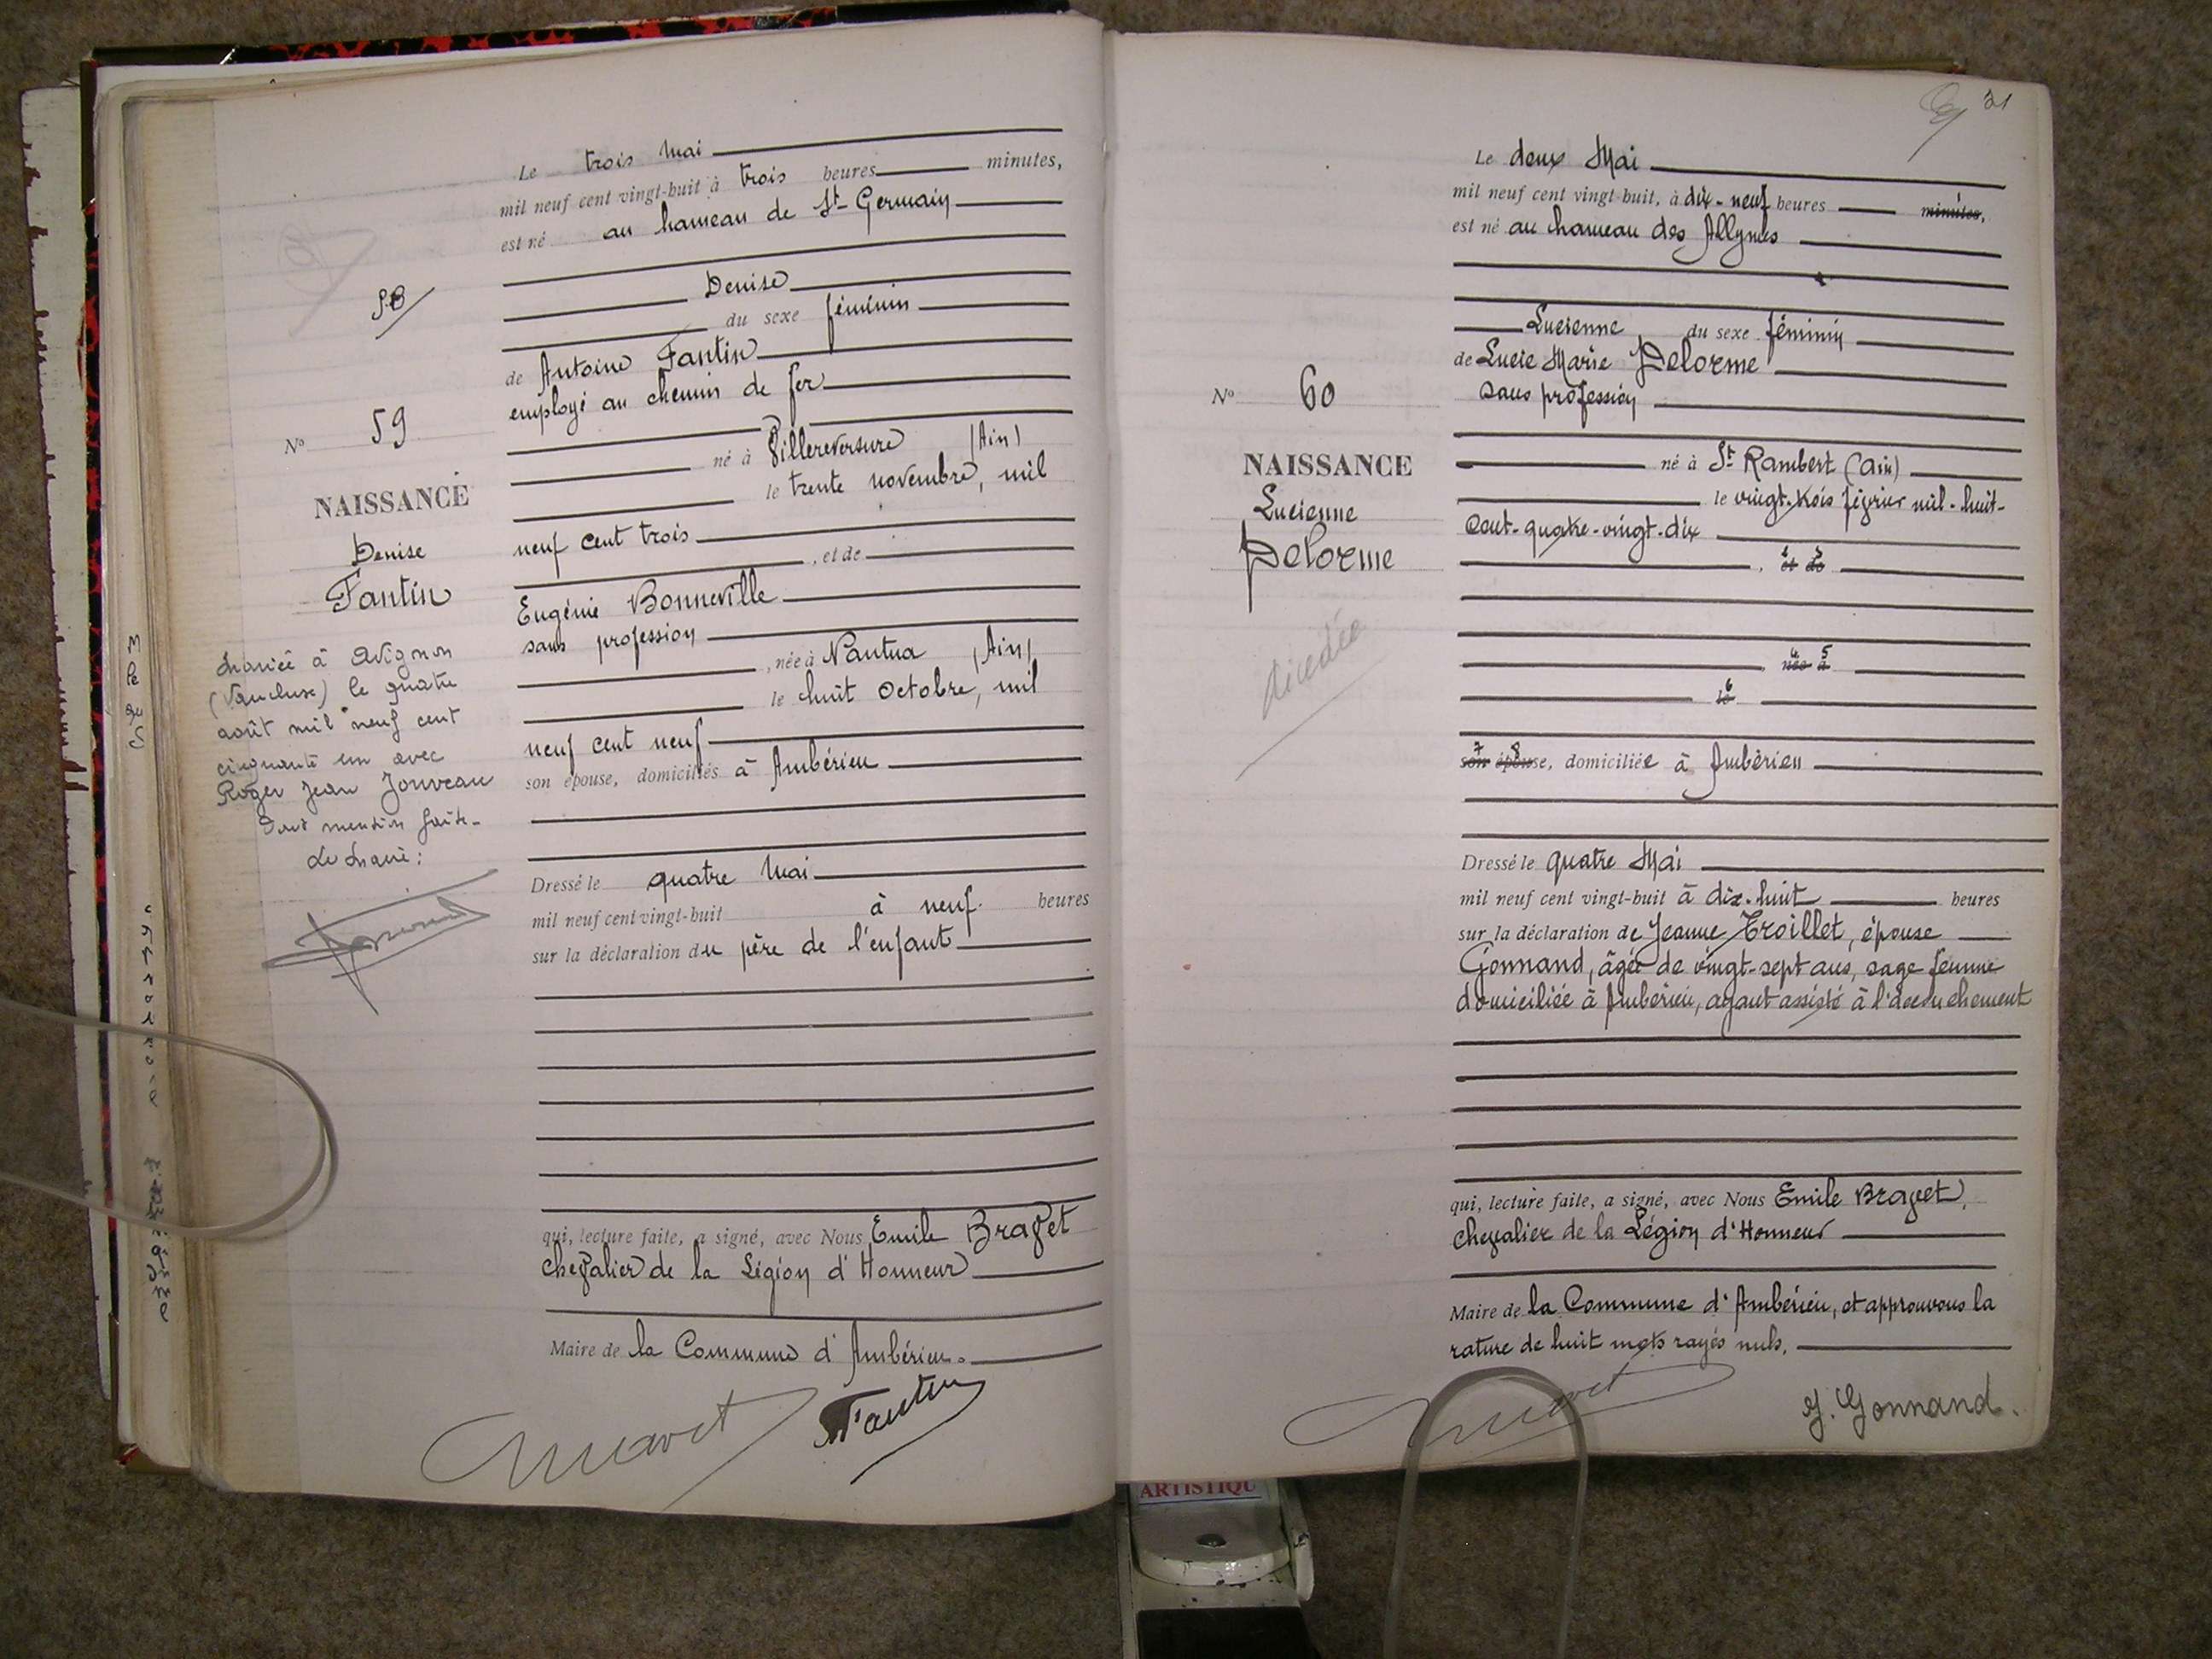 Le trois Mai
mil neuf cent vingt-huit à trois heures minutes,
est né au hameau de St Germain
Denise
du sexe féminin
de Antoine Fantin
employé au chemin de fer
né à Villereversure (Ain)
le trente novembre, mil
neuf cent trois
, et de
Eugénie Bonneville
sans profession
, née à Nantua (Ain)
le huit Octobre, mil
neuf cent neuf
son épouse, domiciliés à Ambérieu
Dressé le quatre Mai
mil neuf cent vingt-huit à neuf heures
sur la déclaration du père de l'enfant
qui, lecture faite, a signé, avec Nous Emile Bravet
chevalier de la Légion d'Honneur
Maire de la Commune d'Ambérieu.
Fantin
No 59
NAISSANCE
Denise
Fantin
Mariée à Avignon
(Vaucluse) le quatre
août mil neuf cent
cinquante un avec
Roger Jean Jouveau
Dont mention faite.
Le Maire:
31
Le deux Mai
mil neuf cent vingt-huit, à dix-neuf heures minutes,
est né au hameau des Allymes
Lucienne du sexe féminin
de Lucie Marie Delorme
sans profession
né à St Rambert (Ain)
le vingt-trois février mil-huit-
cent-quatre-vingt-dix
2 3
, et de
4 5
née à
6
le
7 8
son épouse, domiciliée à Ambérieu
Dressé le quatre Mai
mil neuf cent vingt-huit à dix-huit heures
sur la déclaration de Jeanne Troillet, épouse
Gonnand, âgée de vingt-sept ans, sage femme
domiciliée à Ambérieu, ayant assisté à l'accouchement
qui, lecture faite, a signé, avec Nous Emile Bravet,
chevalier de la Légion d'Honneur
Maire de la Commune d'Ambérieu, et approuvons la
rature de huit mots rayés nuls.
J. Gonnand.
No 60
NAISSANCE
Lucienne
Delorme
décédée
ARTISTIQU